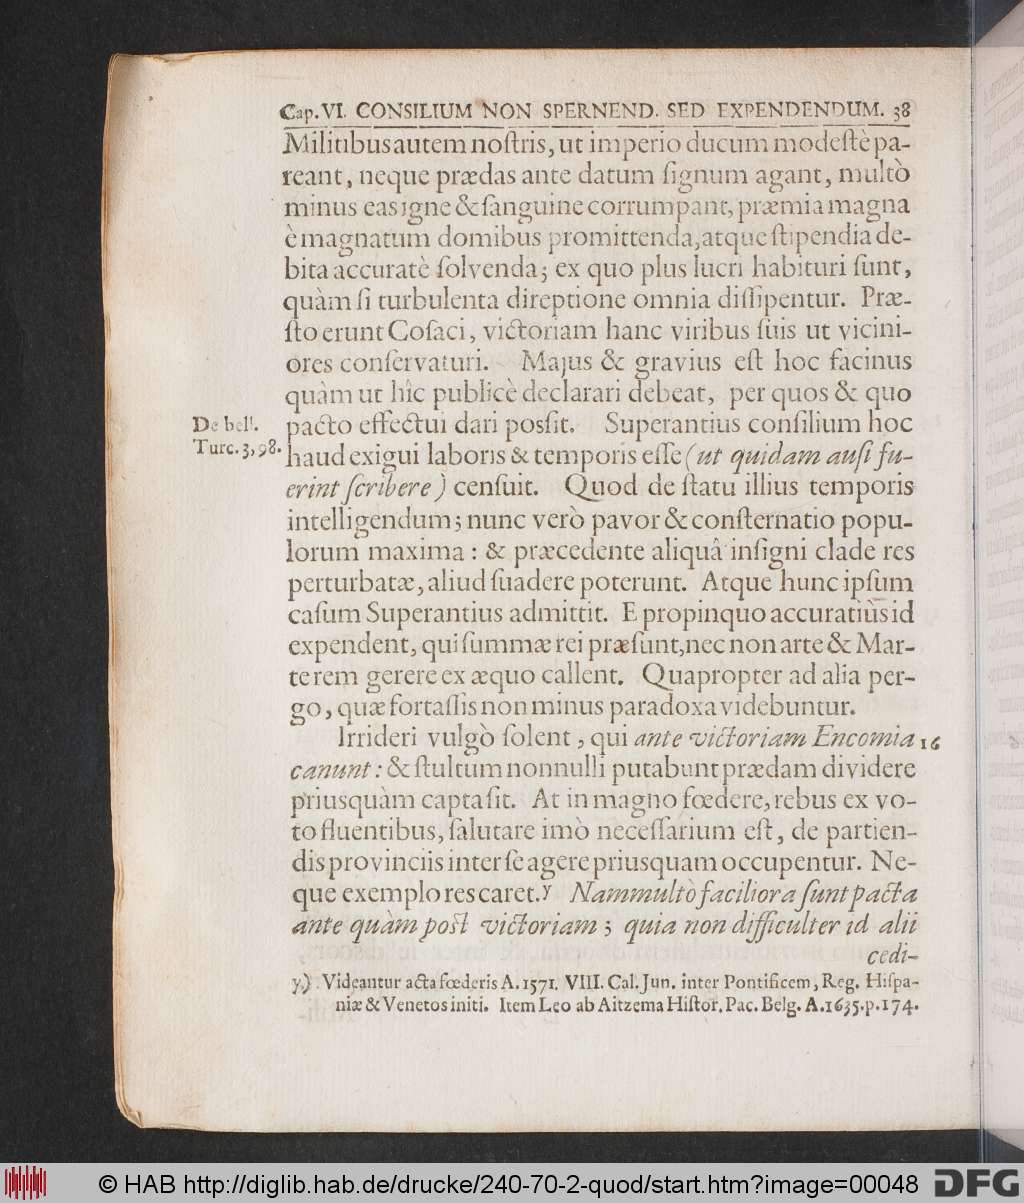 Cap. VI. CONSILIUM NON SPERNEND. SED EXPENDENDUM. 38
Militibus autem noſtris, ut imperio ducum modeſtè pa-
reant, neque prædas ante datum ſignum agant, multò
minus eas igne & ſanguine corrumpant, præmia magna
è magnatum domibus promittenda, atque ſtipendia de-
bita accuratè ſolvenda; ex quo plus lucri habituri ſunt,
quàm ſi turbulenta direptione omnia diſſipentur. Præ-
ſto erunt Coſaci, victoriam hanc viribus ſuis ut vicini-
ores conſervaturi. Majus & gravius eſt hoc facinus
quàm ut hîc publicè declarari debeat, per quos & quo
De bell.
Turc. 3, 98.
pacto effectui dari posſit. Superantius conſilium hoc
haud exigui laboris & temporis eſſe (ut quidam auſi fu-
erint ſcribere) cenſuit. Quod de ſtatu illius temporis
intelligendum; nunc verò pavor & conſternatio popu-
lorum maxima: & præcedente aliquâ inſigni clade res
perturbatæ, aliud ſuadere poterunt. Atque hunc ipſum
caſum Superantius admittit. E propinquo accuratiùs id
expendent, qui ſummæ rei præſunt, nec non arte & Mar-
te rem gerere ex æquo callent. Quapropter ad alia per-
go, quæ fortaſſis non minus paradoxa videbuntur.
Irrideri vulgò ſolent, qui ante victoriam Encomia 16
canunt: & ſtultum nonnulli putabunt prædam dividere
priusquàm capta ſit. At in magno fœdere, rebus ex vo-
to fluentibus, ſalutare imò neceſſarium eſt, de partien-
dis provinciis inter ſe agere priusquam occupentur. Ne-
que exemplo res caret.y Nam multò faciliora ſunt pacta
ante quàm poſt victoriam; quia non difficulter id alii
cedi-
y.) Videantur acta fœderis A. 1571. VIII. Cal. Jun. inter Pontificem, Reg. Hiſpa-
niæ & Venetos initi. Item Leo ab Aitzema Hiſtor. Pac. Belg. A. 1635. p. 174.
© HAB http://diglib.hab.de/drucke/240-70-2-quod/start.htm?image=00048
DFG